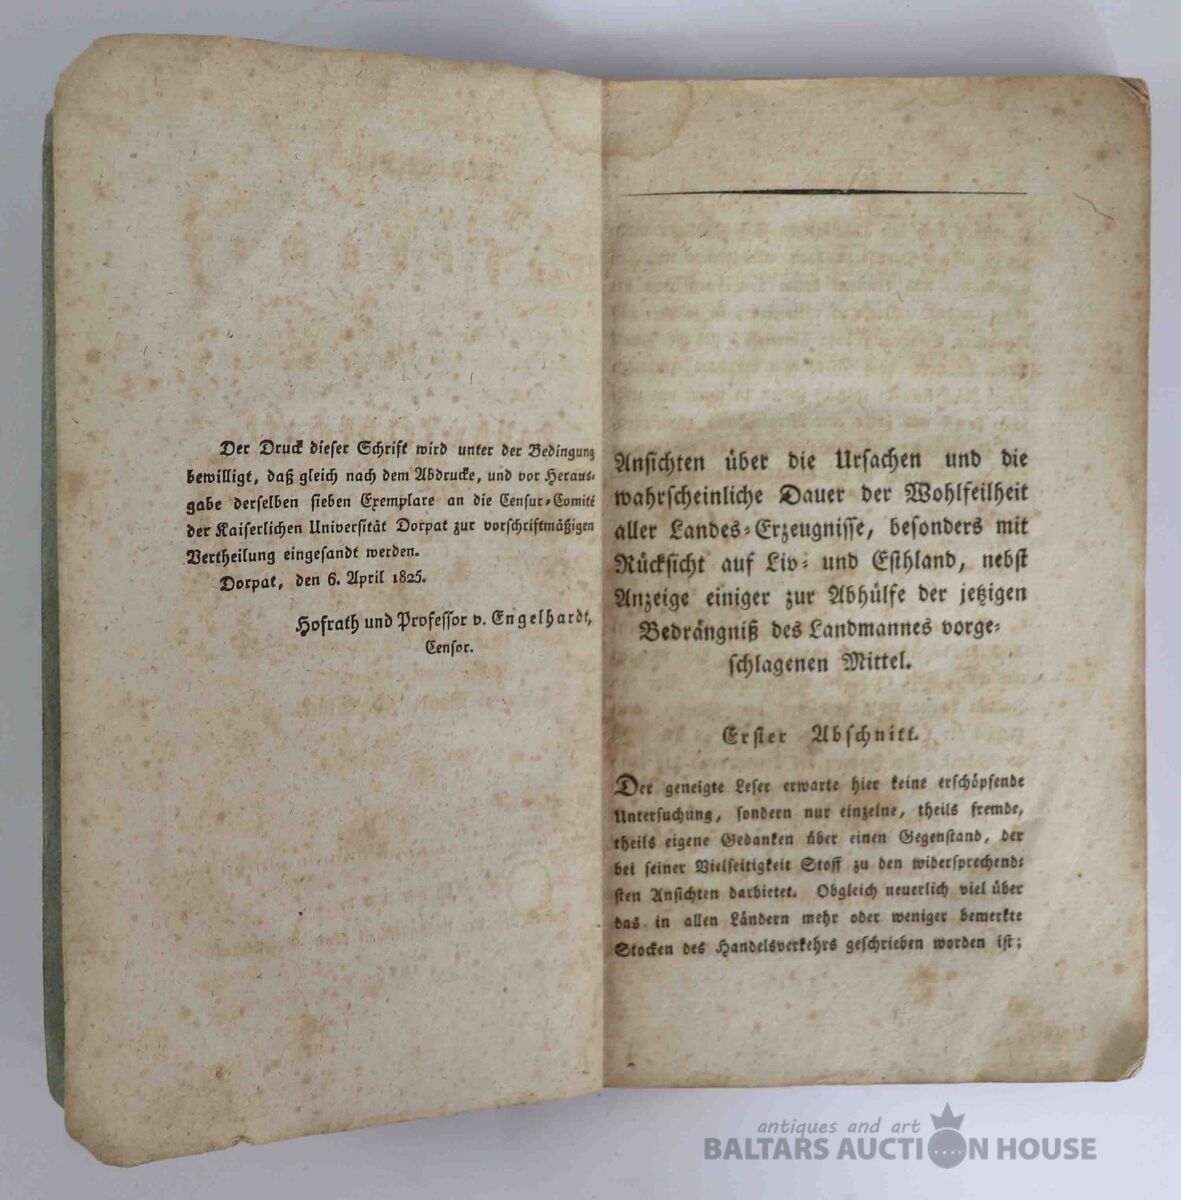 Der Druck dieser Schrift wird unter der Bedingung
bewilligt, daß gleich nach dem Abdrucke, und vor Heraus-
gabe derselben sieben Exemplare an die Censur-Comité
der Kaiserlichen Universität Dorpat zur vorschriftmäßigen
Vertheilung eingesandt werden.
Dorpat, den 6. April 1825.
Hofrath und Professor v. Engelhardt,
Censor.
Ansichten über die Ursachen und die
wahrscheinliche Dauer der Wohlfeilheit
aller Landes-Erzeugnisse, besonders mit
Rücksicht auf Liv- und Esthland, nebst
Anzeige einiger zur Abhülfe der jetzigen
Bedrängniß des Landmannes vorge-
schlagenen Mittel.
Erster Abschnitt.
Der geneigte Leser erwarte hier keine erschöpfende
Untersuchung, sondern nur einzelne, theils fremde,
theils eigene Gedanken über einen Gegenstand, der
bei seiner Vielseitigkeit Stoff zu den widersprechend-
sten Ansichten darbietet. Obgleich neuerlich viel über
das in allen Ländern mehr oder weniger bemerkte
Stocken des Handelsverkehrs geschrieben worden ist;
antiques and art
BALTARS AUCTION HOUSE